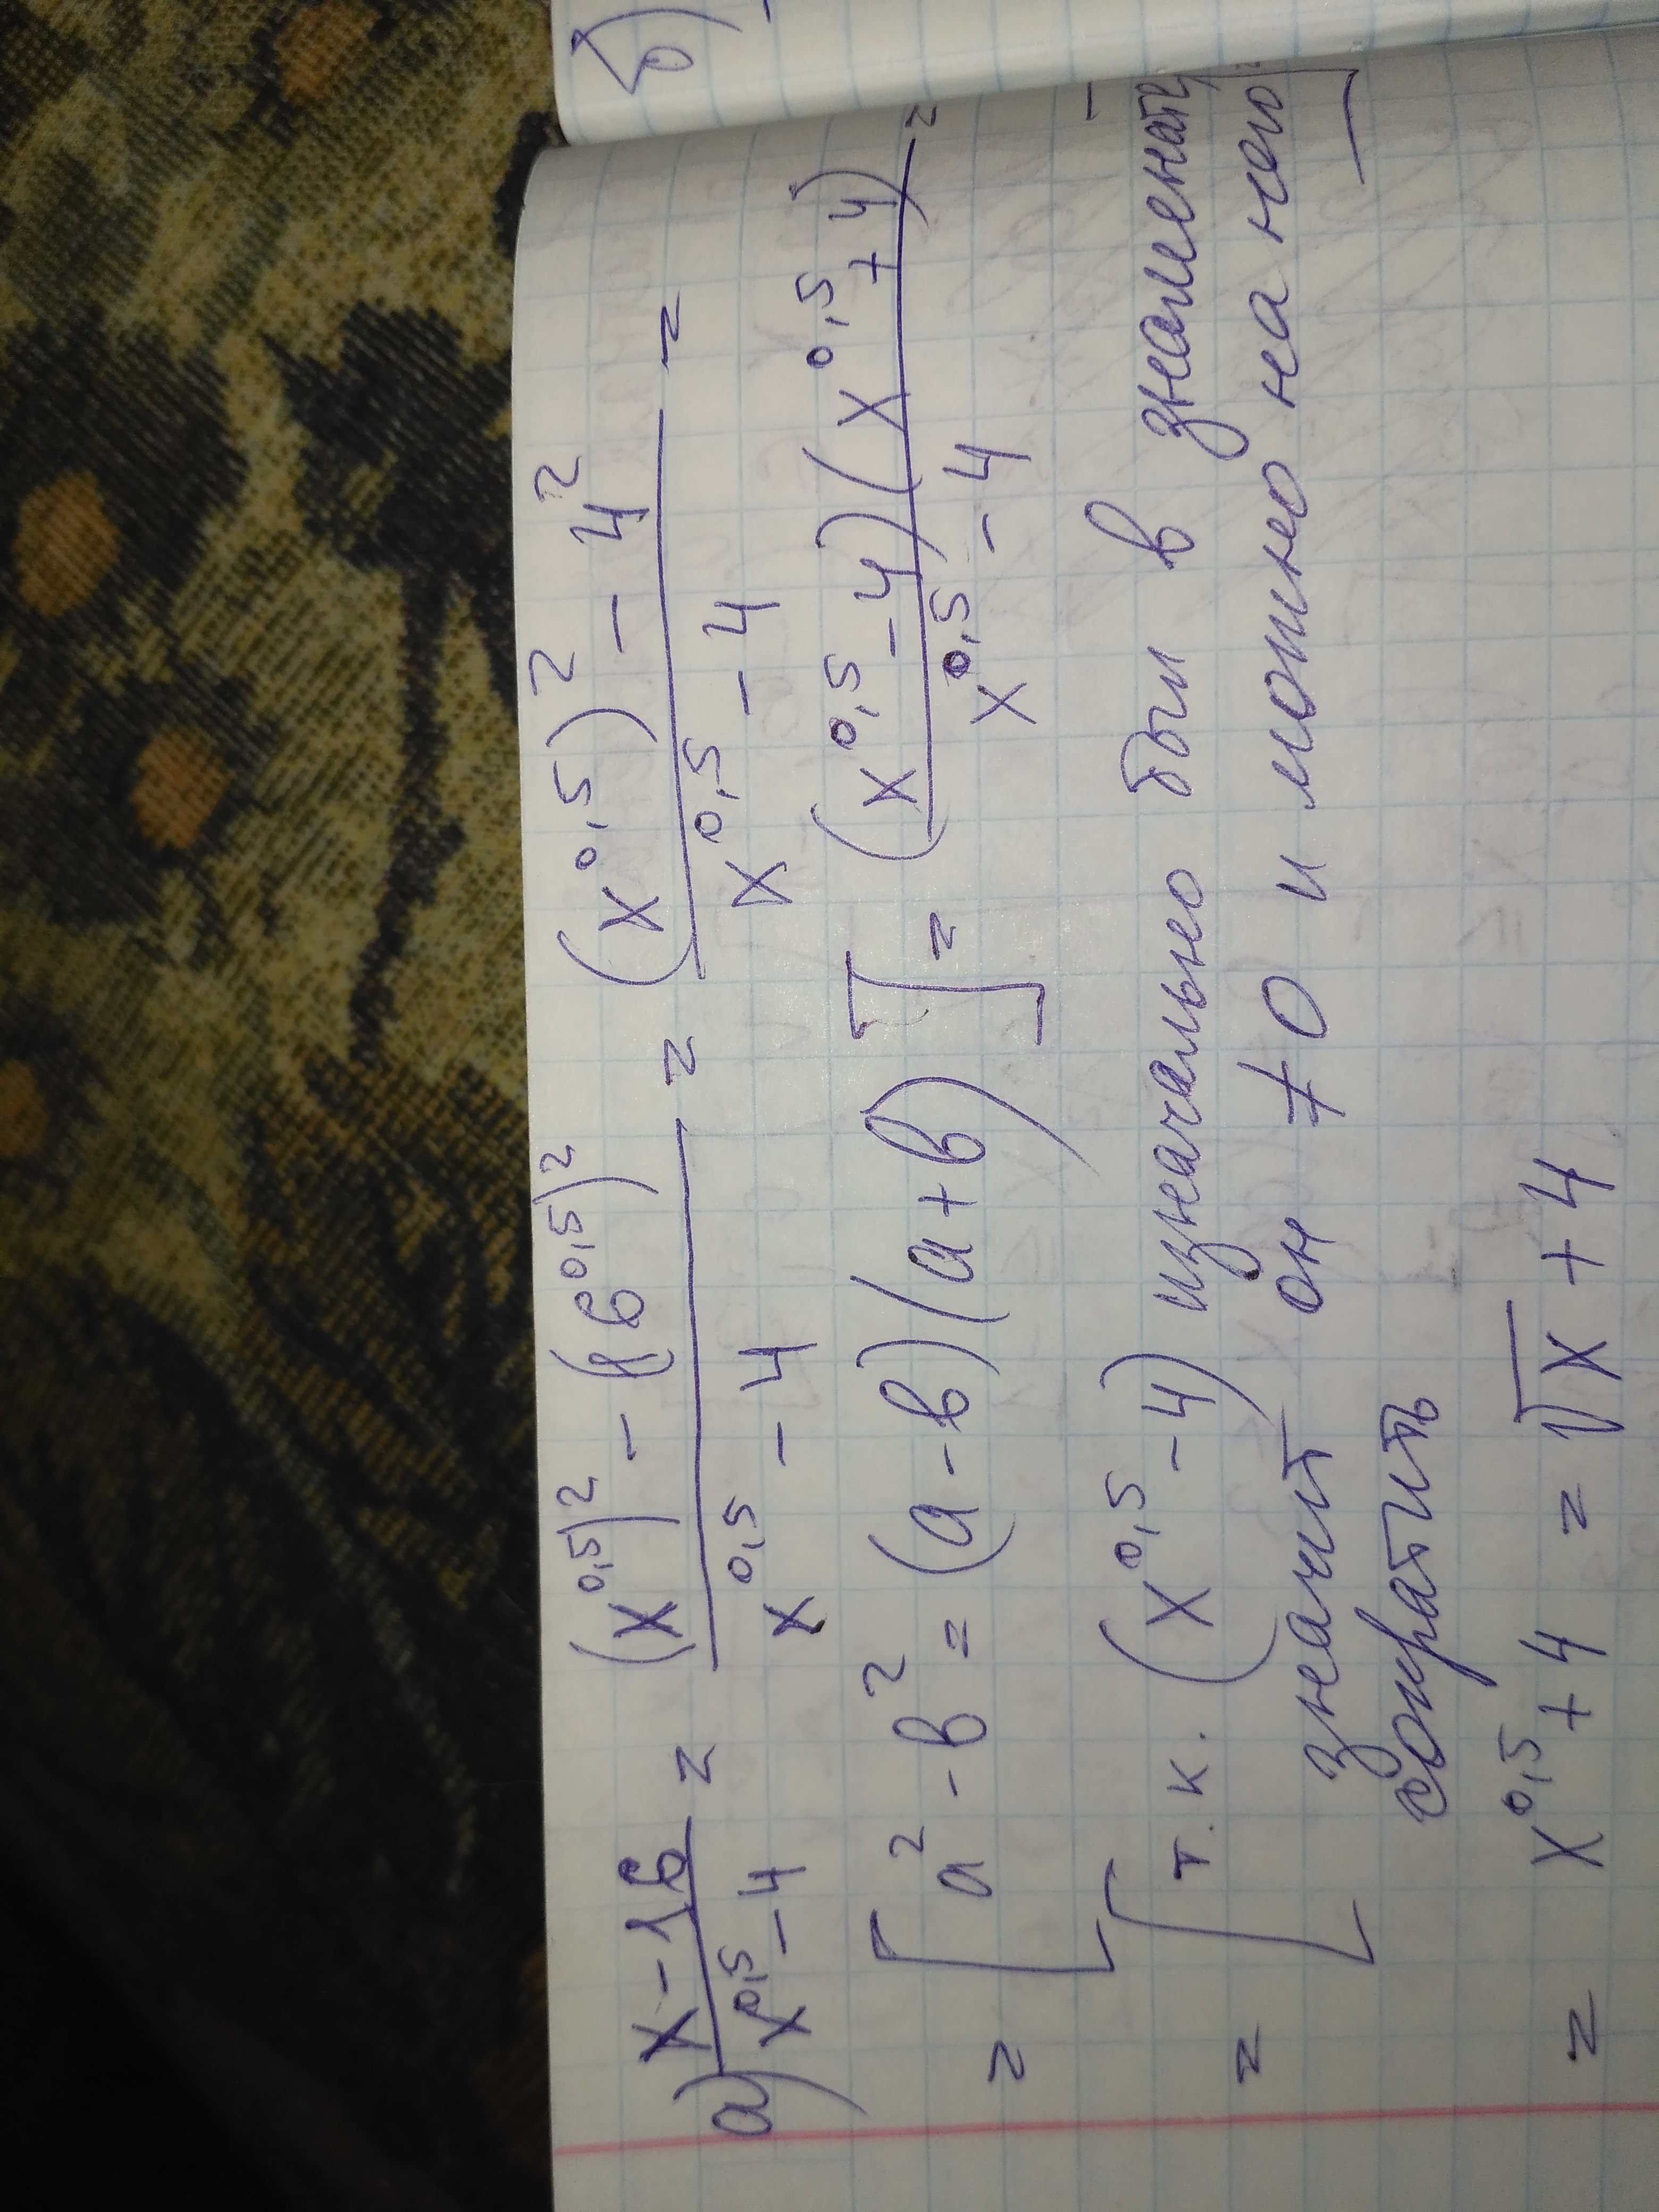 а) (x-16)/(x^0,5-4) = ((x^0,5)^2 - (16^0,5)^2)/(x^0,5 - 4) = ((x^0,5)^2 - 4^2)/(x^0,5 - 4) =
= [a^2 - b^2 = (a-b)(a+b)] = ((x^0,5-4)(x^0,5+4))/(x^0,5 - 4) =
= [т.к. (x^0,5-4) изначально был в
значит он ≠ 0 и можно на него
сократить
= x^0,5 + 4 = √x + 4
б)